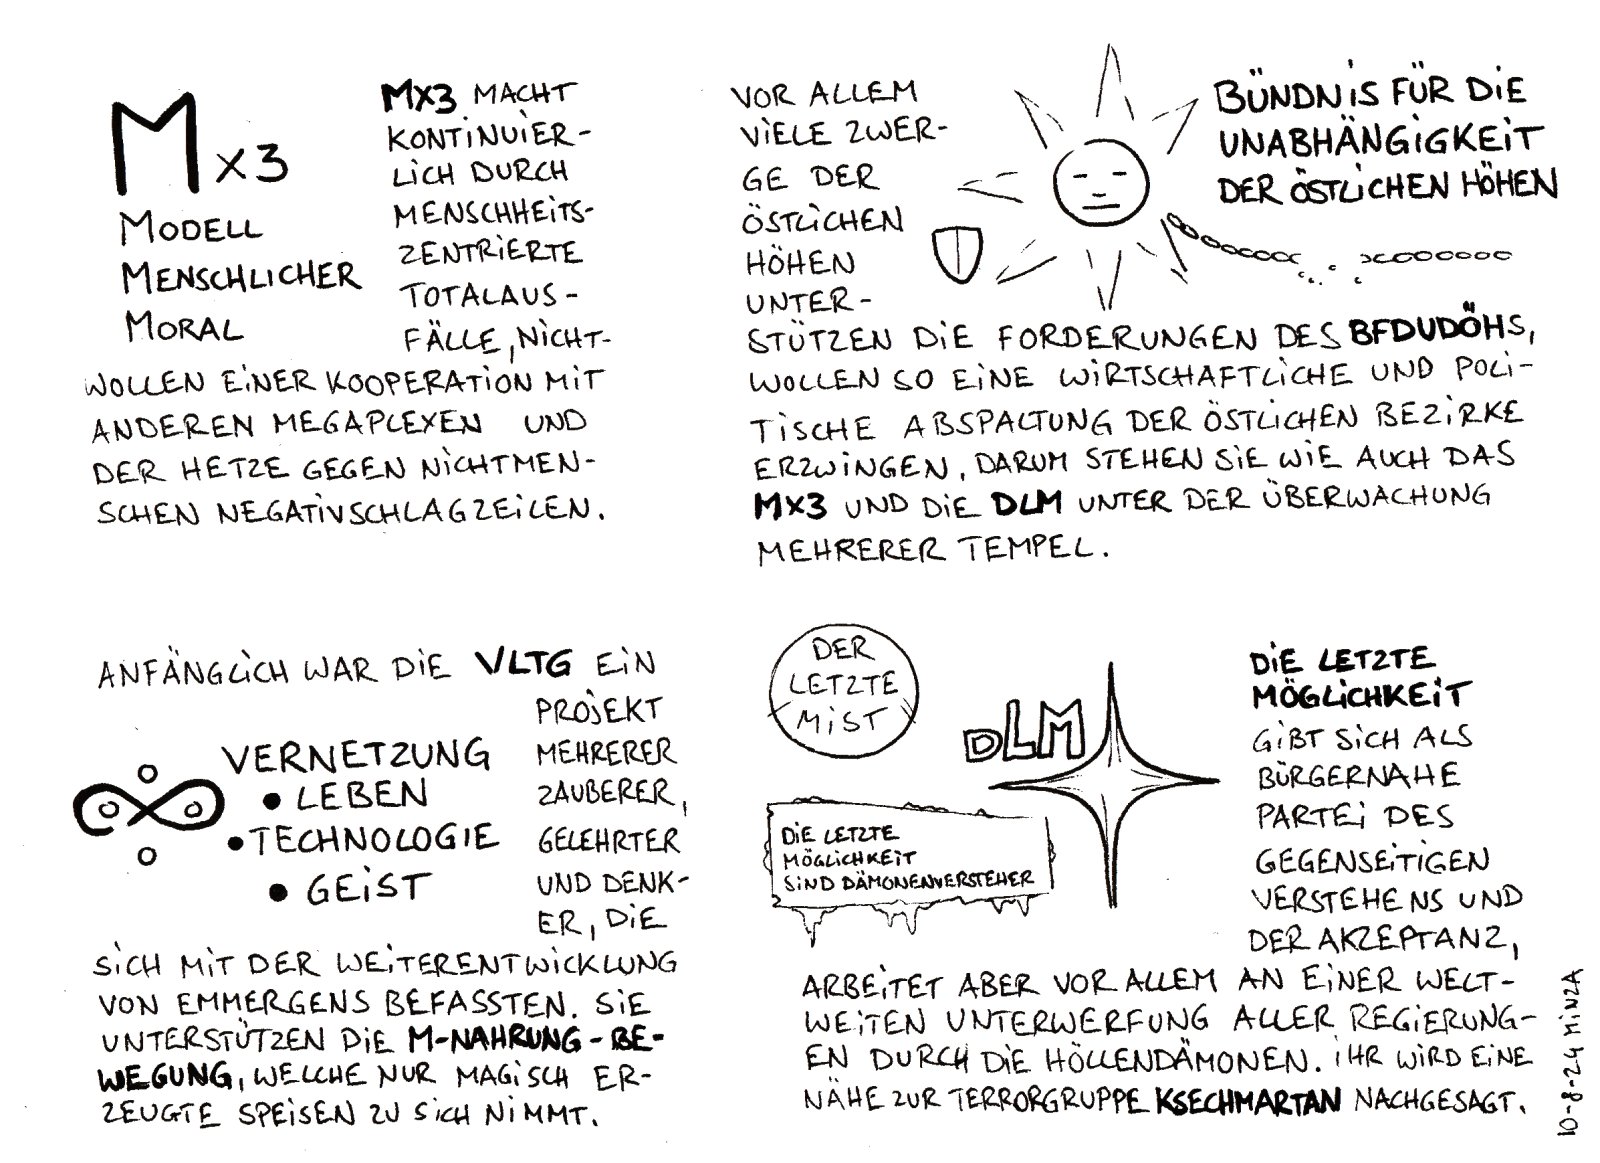 Mx3
MODELL
MENSCHLICHER
MORAL
MX3 MACHT
KONTINUIER-
LICH DURCH
MENSCHHEITS-
ZENTRIERTE
TOTALAUS-
FÄLLE, NICHT-
WOLLEN EINER KOOPERATION MIT
ANDEREN MEGAPLEXEN UND
DER HETZE GEGEN NICHTMEN-
SCHEN NEGATIVSCHLAGZEILEN.
VOR ALLEM
VIELE ZWER-
GE DER
ÖSTLICHEN
HÖHEN
UNTER-
BÜNDNIS FÜR DIE
UNABHÄNGIGKEIT
DER ÖSTLICHEN HÖHEN
STÜTZEN DIE FORDERUNGEN DES BFDUDÖHS,
WOLLEN SO EINE WIRTSCHAFTLICHE UND POLI-
TISCHE ABSPALTUNG DER ÖSTLICHEN BEZIRKE
ERZWINGEN, DARUM STEHEN SIE WIE AUCH DAS
MX3 UND DIE DLM UNTER DER ÜBERWACHUNG
MEHRERER TEMPEL.
ANFÄNGLICH WAR DIE VLTG EIN
PROJEKT
MEHRERER
ZAUBERER,
GELEHRTER
UND DENK-
ER, DIE
VERNETZUNG
• LEBEN
• TECHNOLOGIE
• GEIST
SICH MIT DER WEITERENTWICKLUNG
VON EMMERGENS BEFASSTEN. SIE
UNTERSTÜTZEN DIE M-NAHRUNG-BE-
WEGUNG, WELCHE NUR MAGISCH ER-
ZEUGTE SPEISEN ZU SICH NIMMT.
DER
LETZTE
MIST
DLM
DIE LETZTE
MÖGLICHKEIT
SIND DÄMONENVERSTEHER
DIE LETZTE
MÖGLICHKEIT
GIBT SICH ALS
BÜRGERNAHE
PARTEI DES
GEGENSEITIGEN
VERSTEHENS UND
DER AKZEPTANZ,
ARBEITET ABER VOR ALLEM AN EINER WELT-
WEITEN UNTERWERFUNG ALLER REGIERUNG-
EN DURCH DIE HÖLLENDÄMONEN. IHR WIRD EINE
NÄHE ZUR TERRORGRUPPE KSECHMARTAN NACHGESAGT.
10-8-24 MINZA